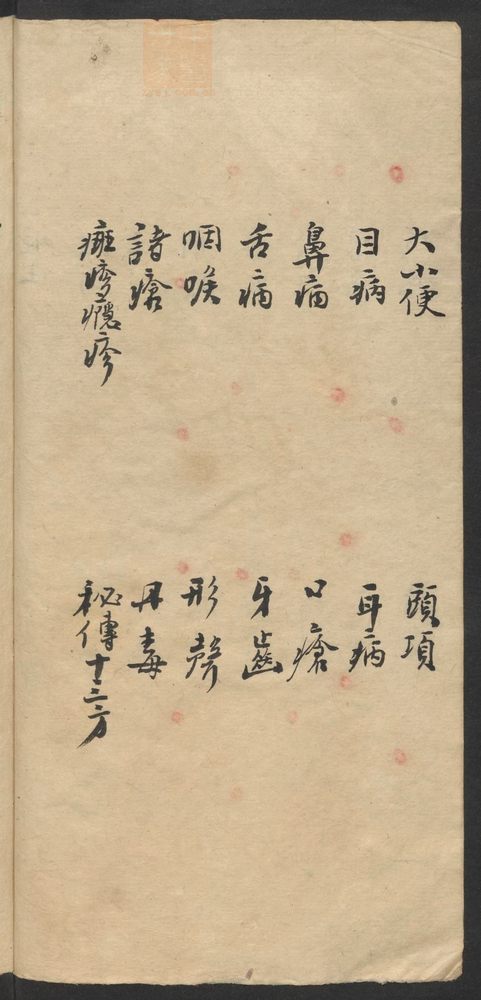 大小便 頭項
目病 耳病
鼻病 口瘡
舌病 牙齒
咽喉 形聲
諸瘡 丹毒
痲疹癮疹 秘傳十三方